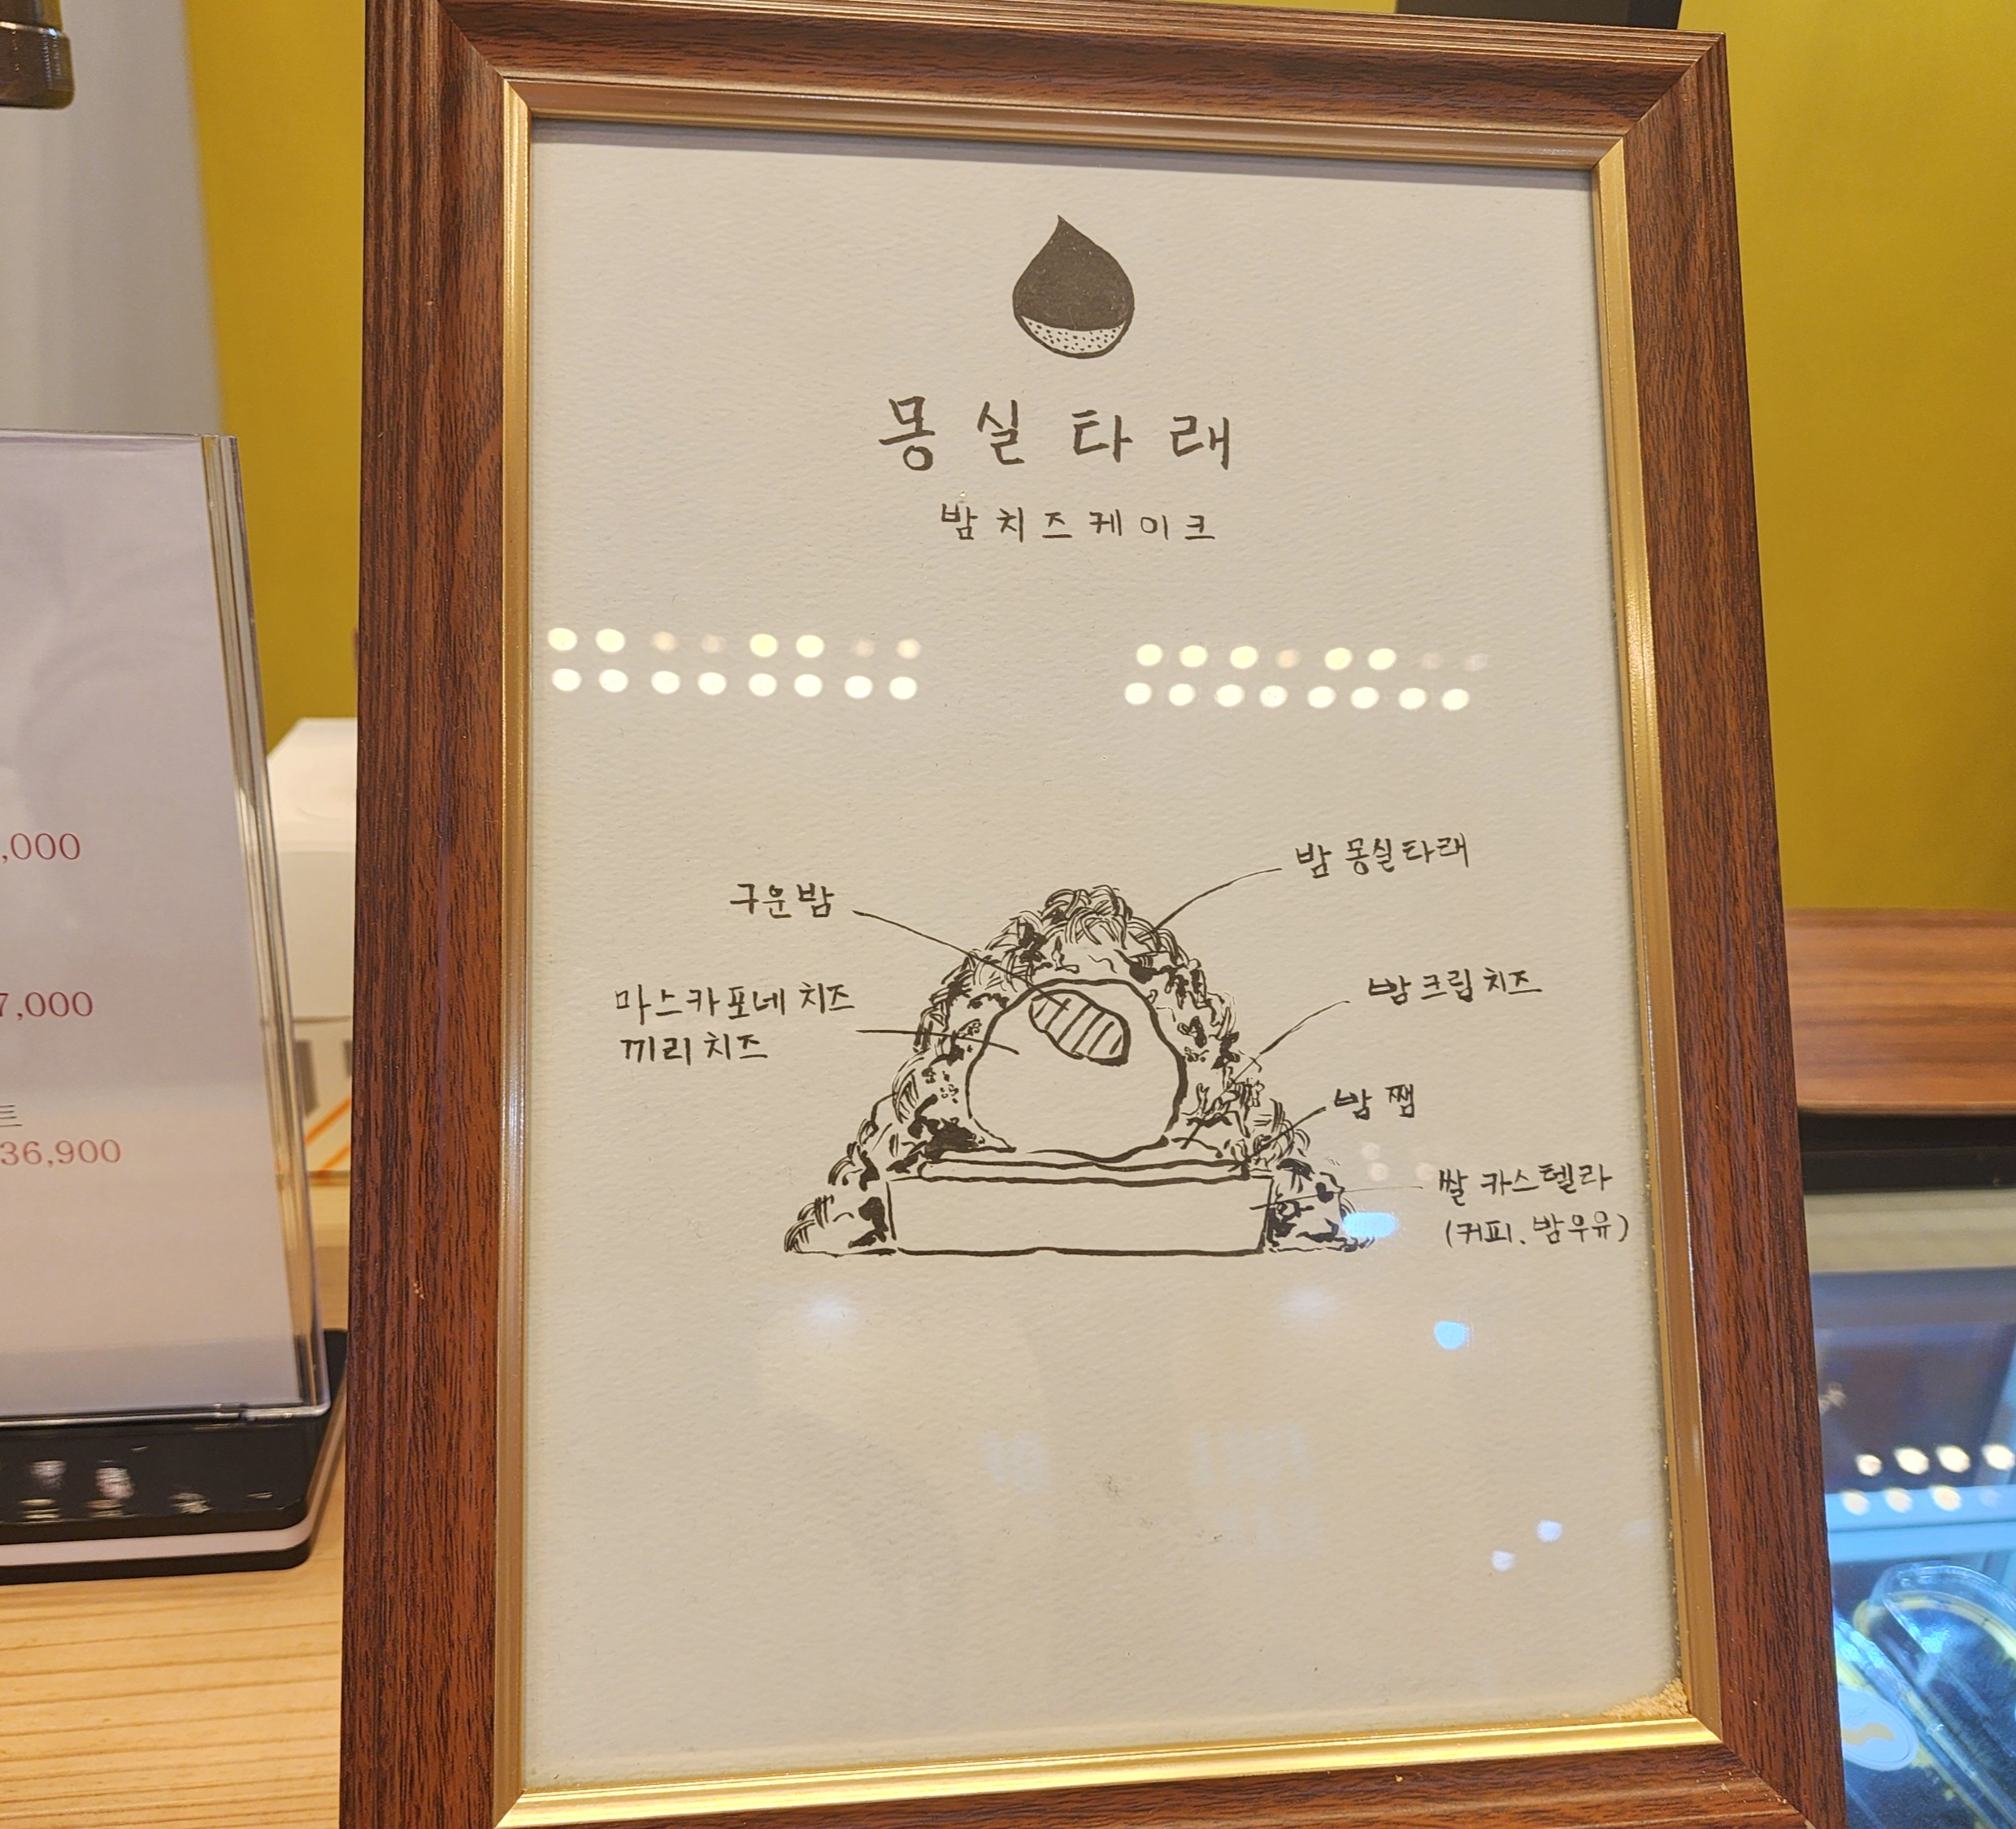 몽실타래
밤치즈케이크
밤 몽실타래
구운밤
마스카포네 치즈
끼리 치즈
밤크림치즈
밤 쨈
쌀 카스텔라
(커피, 밤우유)
,000
7,000
트
36,900